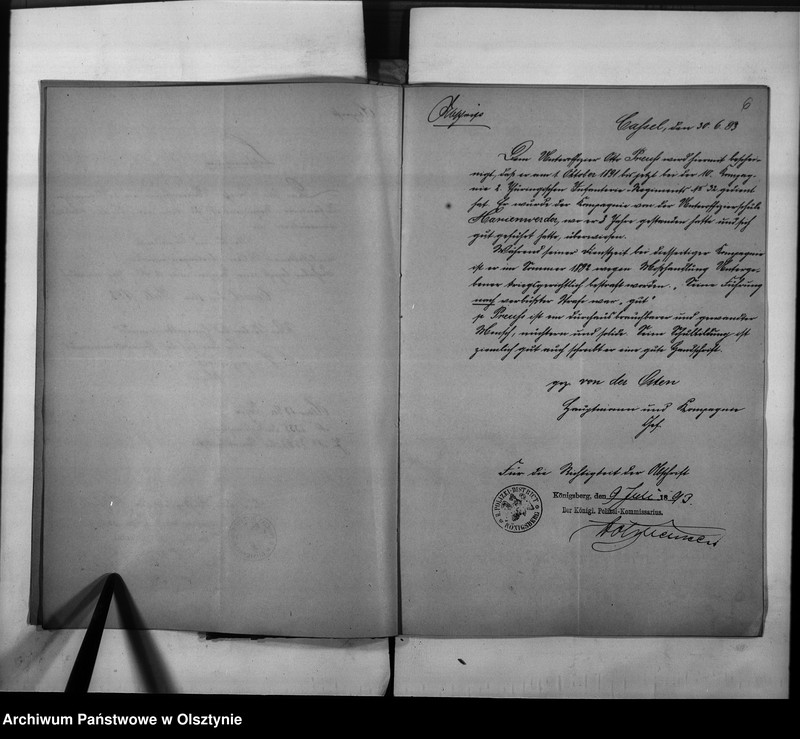 6
Abschrift
Cassel, den 30.6.93
Dem Unteroffizier Otto Preuß wird hiermit beschei-
nigt, daß er am 1. Oktober 1891 bis jetzt bei der 10. Compag-
nie 2. Thüringischen Infanterie-Regiments № 32 gedient
hat. Er wurde der Kompagnie von der Unteroffizierschule
Marienwerder, wo er 3 Jahre gestanden hatte und sich
gut geführt hatte, überwiesen.
Während seiner Dienstzeit bei diesseitiger Compagnie
ist er im Sommer 1892 wegen Mißhandlung Unterge-
bener kriegsgerichtlich bestraft worden. Seine Führung
nach verbüßter Strafe war „gut"
p. Preuß ist ein durchaus brauchbarer und gewandter
Mensch, nüchtern und solide. Seine Schulbildung ist
ziemlich gut auch schreibt er eine gute Handschrift.
gez. von der Osten
Hauptmann und Kompagnie
Chef.
Für die Richtigkeit der Abschrift
Königsberg, den 9 Juli 1893.
Der Königl. Polizei-Kommissarius.
POLIZEI-DISTRICT KÖNIGSBERG
Archiwum Państwowe w Olsztynie